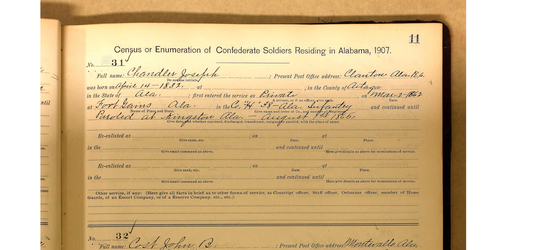 11
Census or Enumeration of Confederate Soldiers Residing in Alabama, 1907.
No. 31
Full name: Chandler Joseph ; Present Post Office address: Clanton Ala.
was born on April 14-1832, at , in the County of Autauga
in the State of Ala. first entered the service as Private on Mar-2-1862
at Fort Gains Ala. in the Co "H" Ala Infantry and continued until
Paroled at Kingston Ala - August
Re-enlisted as at
in the and continued until
Re-enlisted as at
in the and continued until
Other service, if any: (Here give all facts in brief as to other forms of service, as Conscript officer, Staff officer, Ordnance officer, member of Home
Guards, of an Escort Company, or of a Reserve Company, etc., etc.)
No. 32
Full name: Cost John B. ; Present Post Office address: Montevallo Ala.